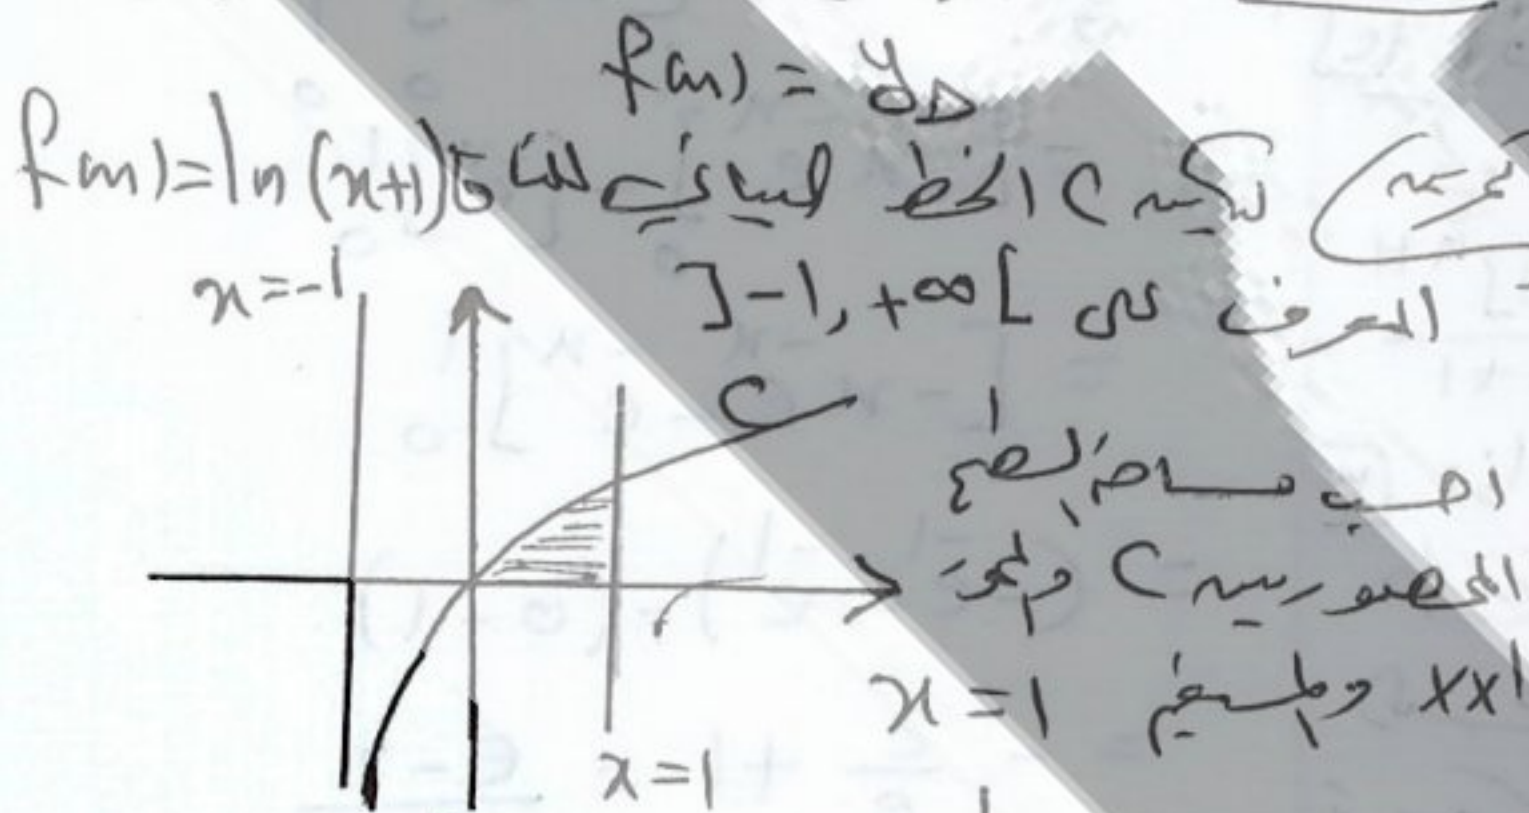 f(x) = y_D
ليكن C الخط البياني للتابع f(x) = ln(x+1)
المعرف على ]-1, +∞[
احسب مساحة السطح
المحصور بين C ومحور
xx' والمستقيم x = 1
x = -1
C
x = 1